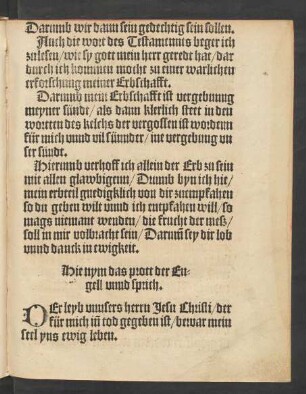 Darumb wir dann sein gedechtig sein sollen.
Auch die wort des Testamenns beger ich
zulesen/ wie sy gott mein herr geredt hat/ dar
durch ich kommen mocht zu einer warlichen
erforschung meiner Erbschafft.
Darumb mein Erbschafft ist vergebnung
meyner sünde/ als dann klerlich steet in den
worten des kelchs der vergossen ist worden
für mich vnnd vil sünnder/ inn vergebung vn
ser sündt.
Hierumb verhoff ich allein der Erb zu sein
mit allen glawbigenn/ Dumb byn ich hie/
mein erbteil gnedigklich von dir zuempfahen
so du geben wilt vnnd ich entpfahen will/ so
mags niemant wenden/ die frucht der meß/
soll in mir volbracht sein/ Darum̃ sey dir lob
vnnd danck in ewigkeit.
Hie nym das prott der En-
gell vnnd sprich.
DEr leyb vnnsers herrn Jesu Christi/ der
für mich in̄ tod gegeben ist/ bewar mein
seel yns ewig leben.